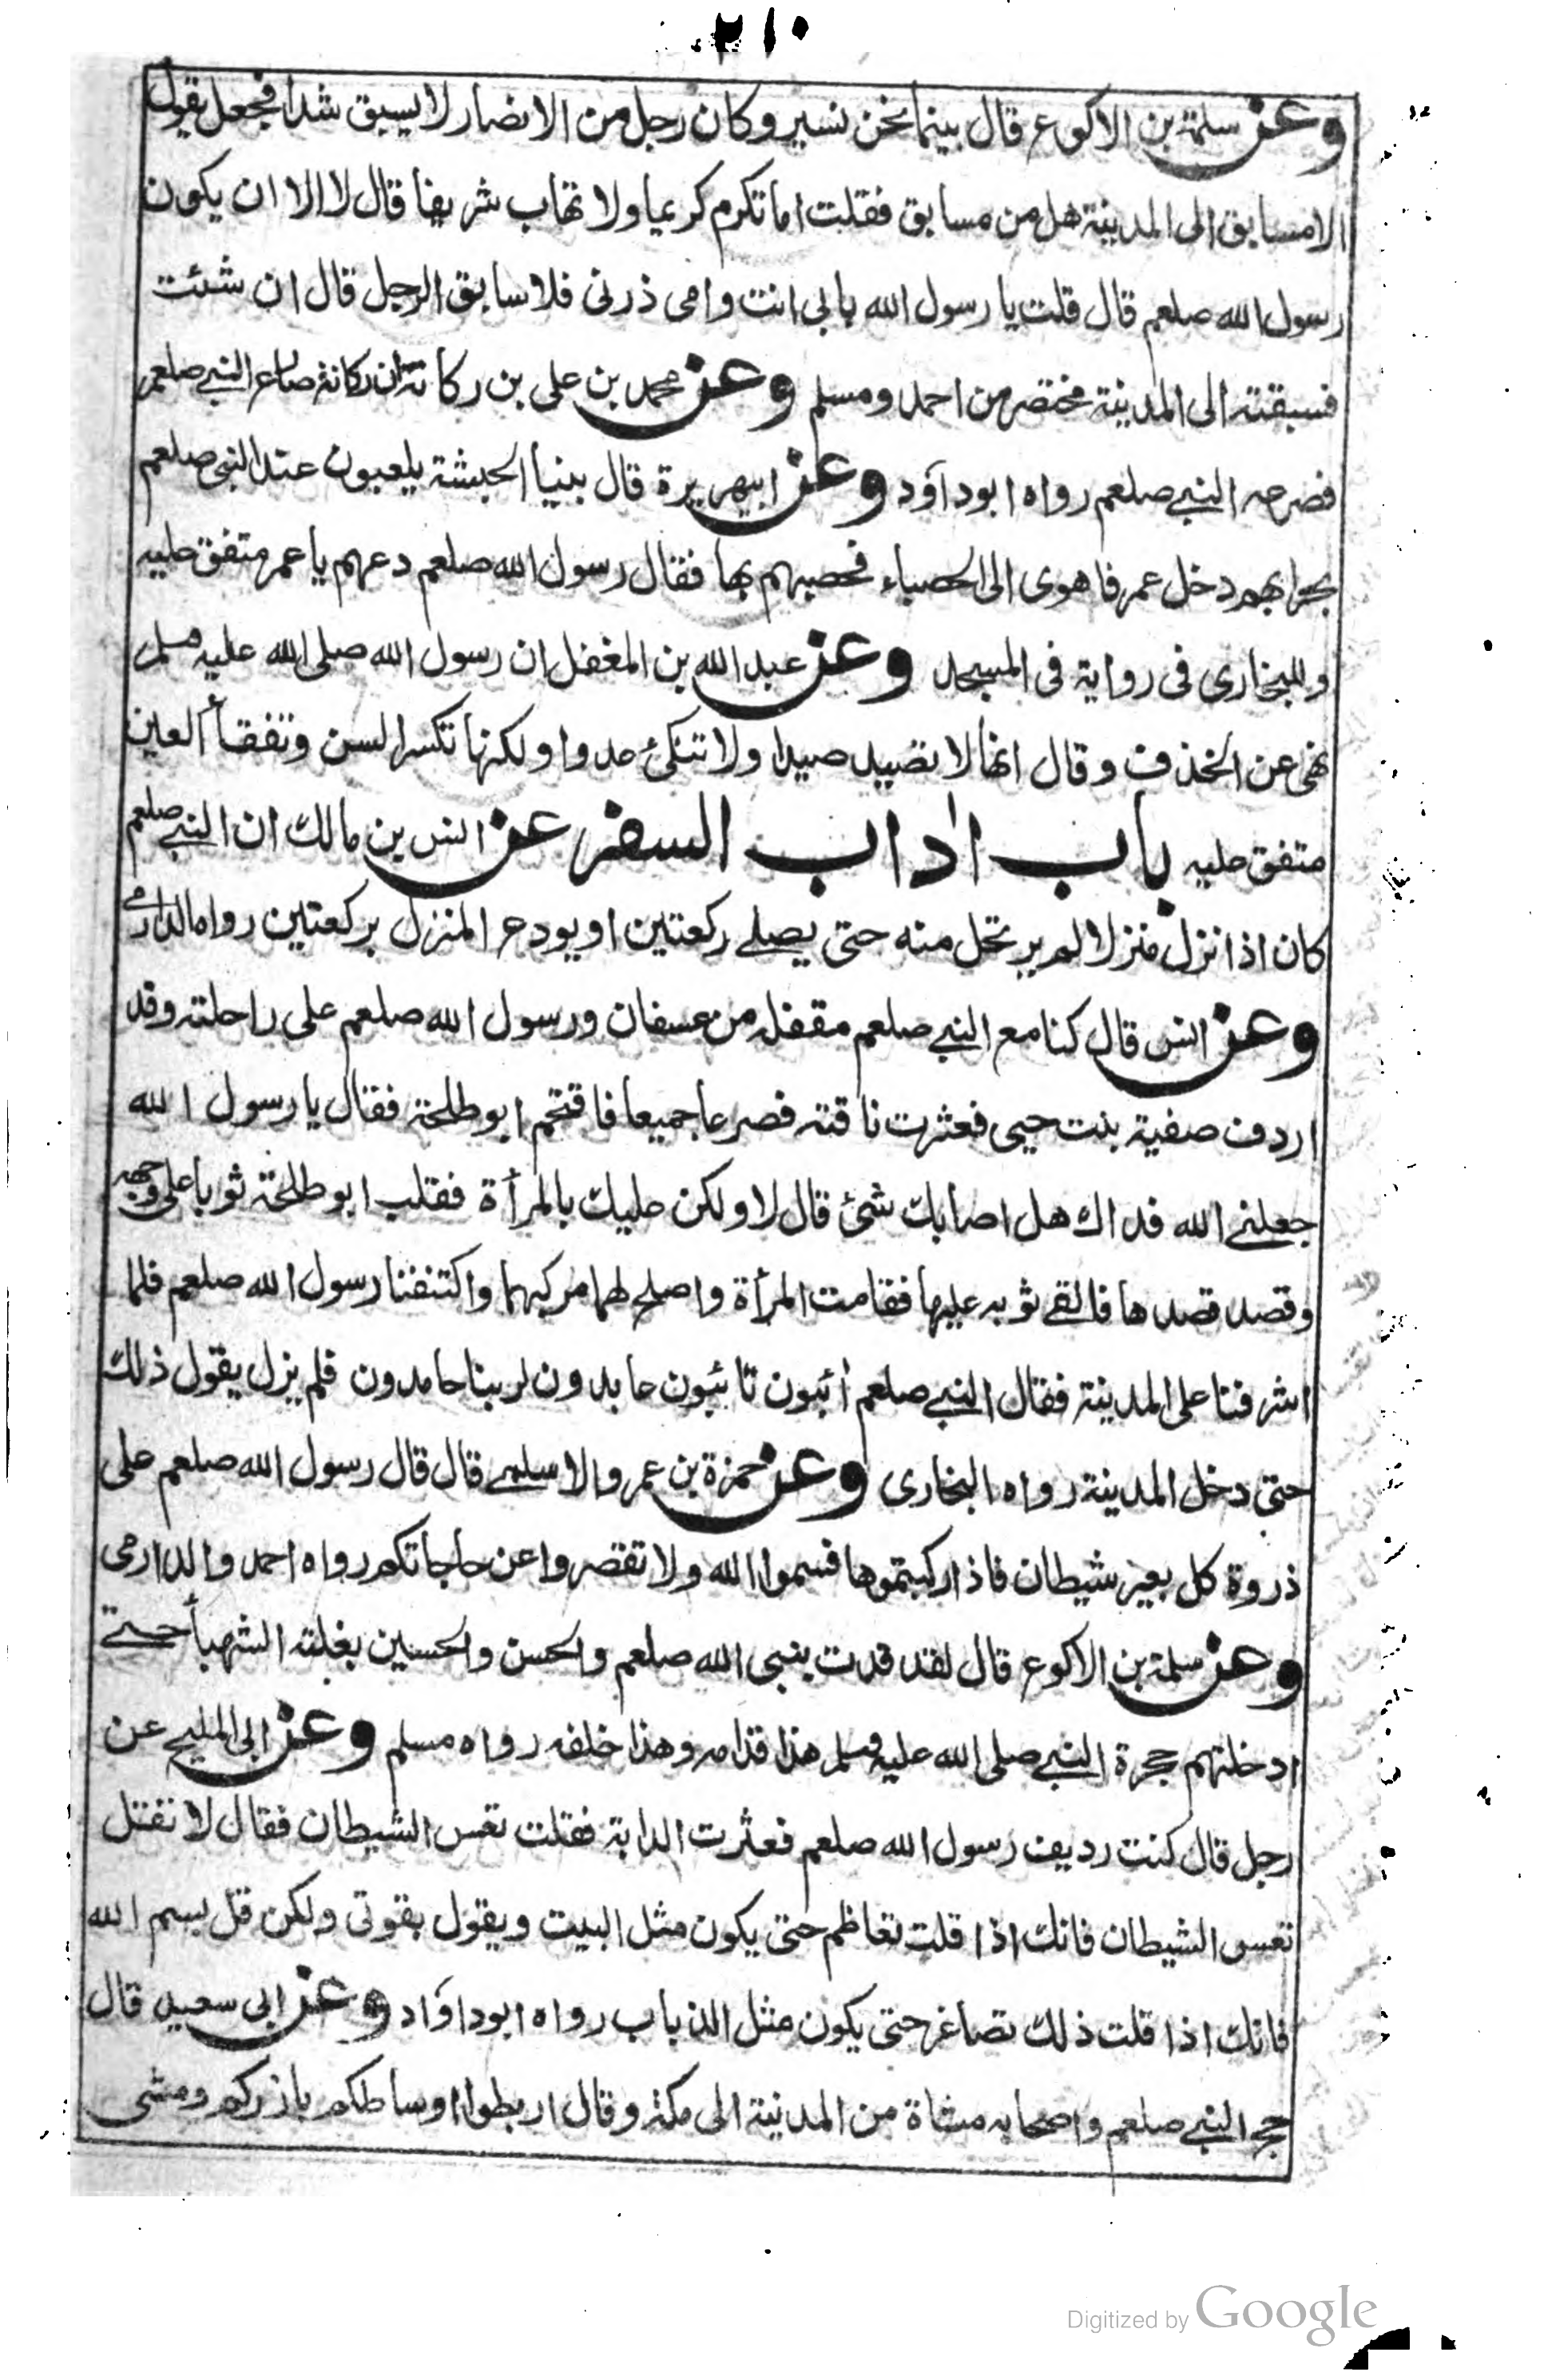 ٢١٠
وعن سلمة بن الاكوع قال بينما نحن نسير وكان رجل من الانصار لا يسبق شدا فجعل يقول
الا مسابق الى المدينة هل من مسابق فقلت اما تكرم كريما ولا تهاب شريفا قال لا الا ان يكون
رسول الله صلعم قال قلت يا رسول الله بابي انت وامى ذرنى فلاسابق الرجل قال ان شئت
فسبقته الى المدينة مختصر من احمد ومسلم وعن محمد بن على بن ركانة ان ركانة صارع النبي صلعم
فصرعه النبي صلعم رواه ابوداؤد وعن ابيهريرة قال بينا الحبشة يلعبون عند النبى صلعم
بحرابهم دخل عمر فاهوى الى الحصباء فحصبهم بها فقال رسول الله صلعم دعهم يا عمر متفق عليه
وللبخارى فى رواية فى المسجد وعن عبد الله بن المغفل ان رسول الله صلى الله عليه وسلم
نهى عن الخذف وقال انها لا تصيد صيدا ولا تنكئ عدوا ولكنها تكسر السن وتفقأ العين
متفق عليه باب اداب السفر عن انس بن مالك ان النبي صلعم
كان اذا نزل منزلا لم يرتحل منه حتى يصلے ركعتين او يودع المنزل بركعتين رواه الدارمے
وعن انس قال كنا مع النبي صلعم مقفله من عسفان ورسول الله صلعم على راحلته وقد
اردف صفية بنت حيى فعثرت ناقته فصرعا جميعا فاقتحم ابو طلحة فقال يا رسول الله
جعلنے الله فداك هل اصابك شئ قال لا ولكن عليك بالمرأة فقلب ابو طلحة ثوبا على وجهه
وقصد قصدها فالقے ثوبه عليها فقامت المرأة واصلح لهما مركبهما واكتنفنا رسول الله صلعم فلما
اشرفنا على المدينة فقال النبي صلعم أئبون تائبون عابدون لربنا حامدون فلم يزل يقول ذلك
حتى دخل المدينة رواه البخارى وعن حمزة بن عمرو الاسلمے قال قال رسول الله صلعم على
ذروة كل بعير شيطان فاذا ركبتموها فسموا الله ولا تقصروا عن حاجاتكم رواه احمد والدارمى
وعن سلمة بن الاكوع قال لقد قدت بنبى الله صلعم والحسن والحسين بغلته الشهبأ حتے
ادخلتهم حجرة النبي صلى الله عليه وسلم هذا قدامه وهذا خلفه رواه مسلم وعن ابى المليح عن
رجل قال كنت رديف رسول الله صلعم فعثرت الدابة فقلت تعس الشيطان فقال لا تقتل
تعس الشيطان فانك اذا قلت تعاظم حتى يكون مثل البيت ويقول بقوتى ولكن قل بسم الله
فانك اذا قلت ذلك تصاغر حتى يكون مثل الذباب رواه ابوداؤد وعن ابى سعيد قال
حج النبي صلعم واصحابه مشاة من المدينة الى مكة وقال اربطوا اوساطكم بازركم ومشى
Digitized by Google